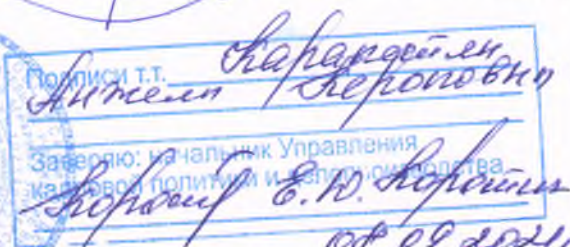 Подписи т.т. Карапетян
Анжелы Кероповны
Заверяю: начальник Управления
кадровой политики и делопроизводства
Е.Ю. Коротин
09 2021